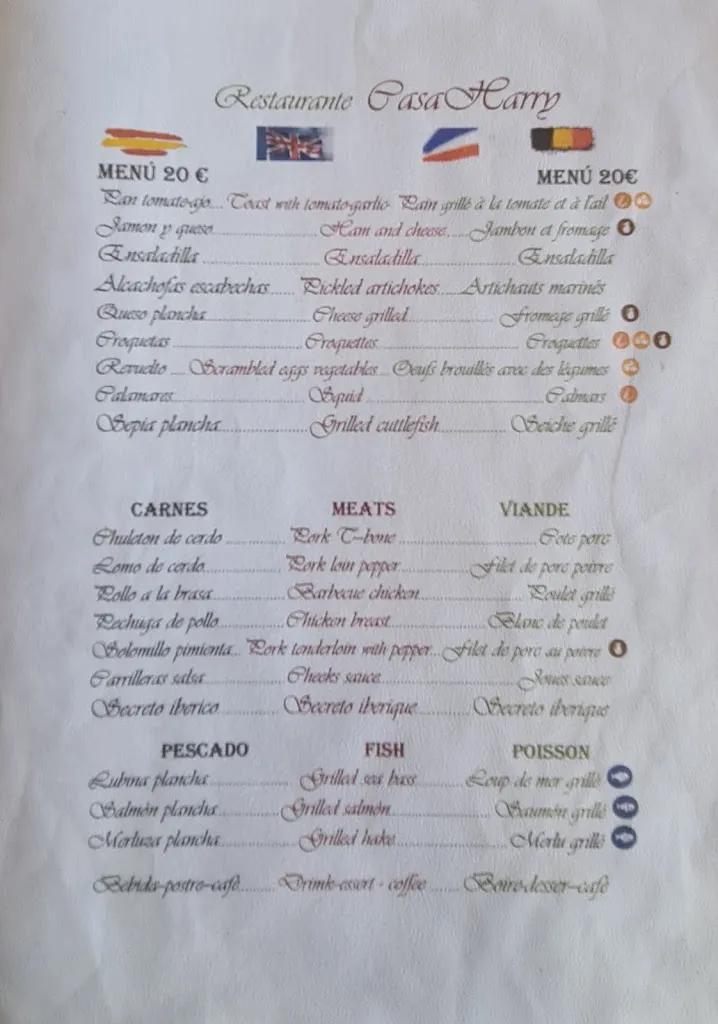 Restaurante CasaHarry
MENÚ 20 € MENÚ 20€
Pan tomate-ajo... Toast with tomato-garlic Pain grillé à la tomate et à l'ail
Jamon y queso Ham and cheese Jambon et fromage
Ensaladilla Ensaladilla Ensaladilla
Alcachofas escabechas Pickled artichokes Artichauts marinés
Queso plancha Cheese grilled Fromege grillé
Croquetas Croquettes Croquettes
Revuelto Scrambled eggs vegetables Oeufs brouillés avec des légumes
Calamares Squid Calmars
Sepia plancha Grilled cuttlefish Seiche grillé
CARNES MEATS VIANDE
Chuleton de cerdo Pork T-bone Cote porc
Lomo de cerdo Pork loin pepper Filet de porc poivre
Pollo a la brasa Barbecue chicken Poulet grillé
Pechuga de pollo Chicken breast Blanc de poulet
Solomillo pimienta... Pork tenderloin with pepper... Filet de porc au poivre
Carrilleras salsa Cheeks sauce Joues sauce
Secreto iberico Secreto iberique Secreto iberique
PESCADO FISH POISSON
Lubina plancha Grilled sea bass Loup de mer grillé
Salmón plancha Grilled salmón Saumón grillé
Merluza plancha Grilled hake Merlu grillé
Bebida-postre-café Drimk-essert - coffee Boire-desser-café